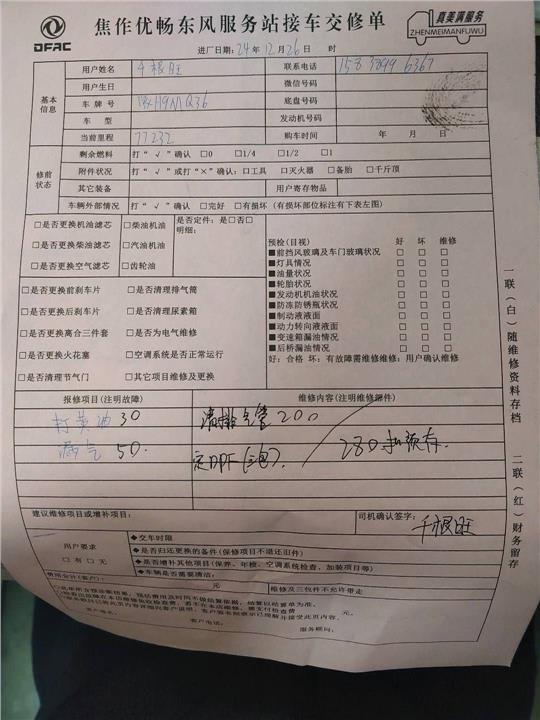 DFAC
焦作优畅东风服务站接车交修单
真美满服务
ZHENMEIMANFUWU
进厂日期:24年12月26日 时
基本信息
用户姓名 千根旺 联系电话
用户生日 微信号码
车牌号 底盘号码
车型 发动机号码
当前里程 77232 购车时间 年 月 日
修前状态
剩余燃料 打“√”确认 □0 □1/4 □1/2 □1
附件状况 打“√”或打“×”确认:□工具 □灭火器 □备胎 □千斤顶
其它装备 用户寄存物品
车辆外部情况 打“√”确认 □完好 □有损坏(有损坏部位标注有下表左图)
□是否更换机油滤芯 □柴油机油 是否定件:是□否□
□是否更换柴油滤芯 □汽油机油 明细:
□是否更换空气滤芯 □齿轮油
□是否更换前刹车片 □是否清理排气筒
□是否更换后刹车片 □是否清理尿素箱
□是否更换离合三件套 □是否为电气维修
□是否更换火花塞 □空调系统是否正常运行
□是否清理节气门 □其它项目维修及更换
预检(目视) 好 坏 维修
■前挡风玻璃及车门玻璃状况 □ □ □
■灯具情况 □ □ □
■油量状况 □ □ □
■轮胎状况 □ □ □
■发动机机油状况 □ □ □
■防冻防锈瓶状况 □ □ □
■制动液液面 □ □ □
■动力转向液液面 □ □ □
■变速箱漏油情况 □ □ □
■后桥漏油情况 □ □ □
好:合格 坏:有故障需维修维修:用户确认维修
报修项目(注明故障) 维修内容(注明维修部件)
打黄油 30 清排气管 200
漏气 50. 280扣预存.
建议维修项目或增补项目: 司机确认签字: 千根旺
用户要求
□有 □无
◆交车时限
◆是否归还更换的备件(保修项目不退还旧件)
◆是否增补其他项目(保养、年检、空调系统检查、加装项目等)
◆车辆是否需要清洁:
费用合计(客户): 元 维修及三包件不允许带走
客户签名: 客户电话: 服务顾问:
一联(白)随维修资料存档
二联(红)财务留存